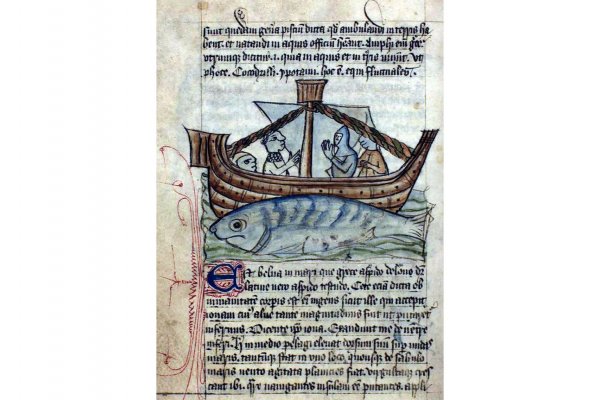 sunt quedam gen̄a pisciū dicta qđ ambulandi in terris ha
bent. et natandi in aquis officiū
dicitur .i. qua in aquis et in t̄ris uiuit. ut
phoce. Cocodrilli. ypotami. hoc ē. equi fluctuales.
Est belua in mari que grece aspido delone dr̄
latine uero aspido testudo. Cete eciā dicta ob
inmanitatem corpis est eī ingens sicut ille qui accepit
ionam cuī alue tante magnitudinis fuit ut putaret
infernus. Dicente ip̄o iona. Exaudiuit me de uentre
inferi. in medio pelagi eleuat dorsum suū sup̄ undas
maris. stat in uno loco. quousque de sabulo
maris uento agitata planicies fiat. cres
cant ibi. nauigantes insulam eē putantes. appli